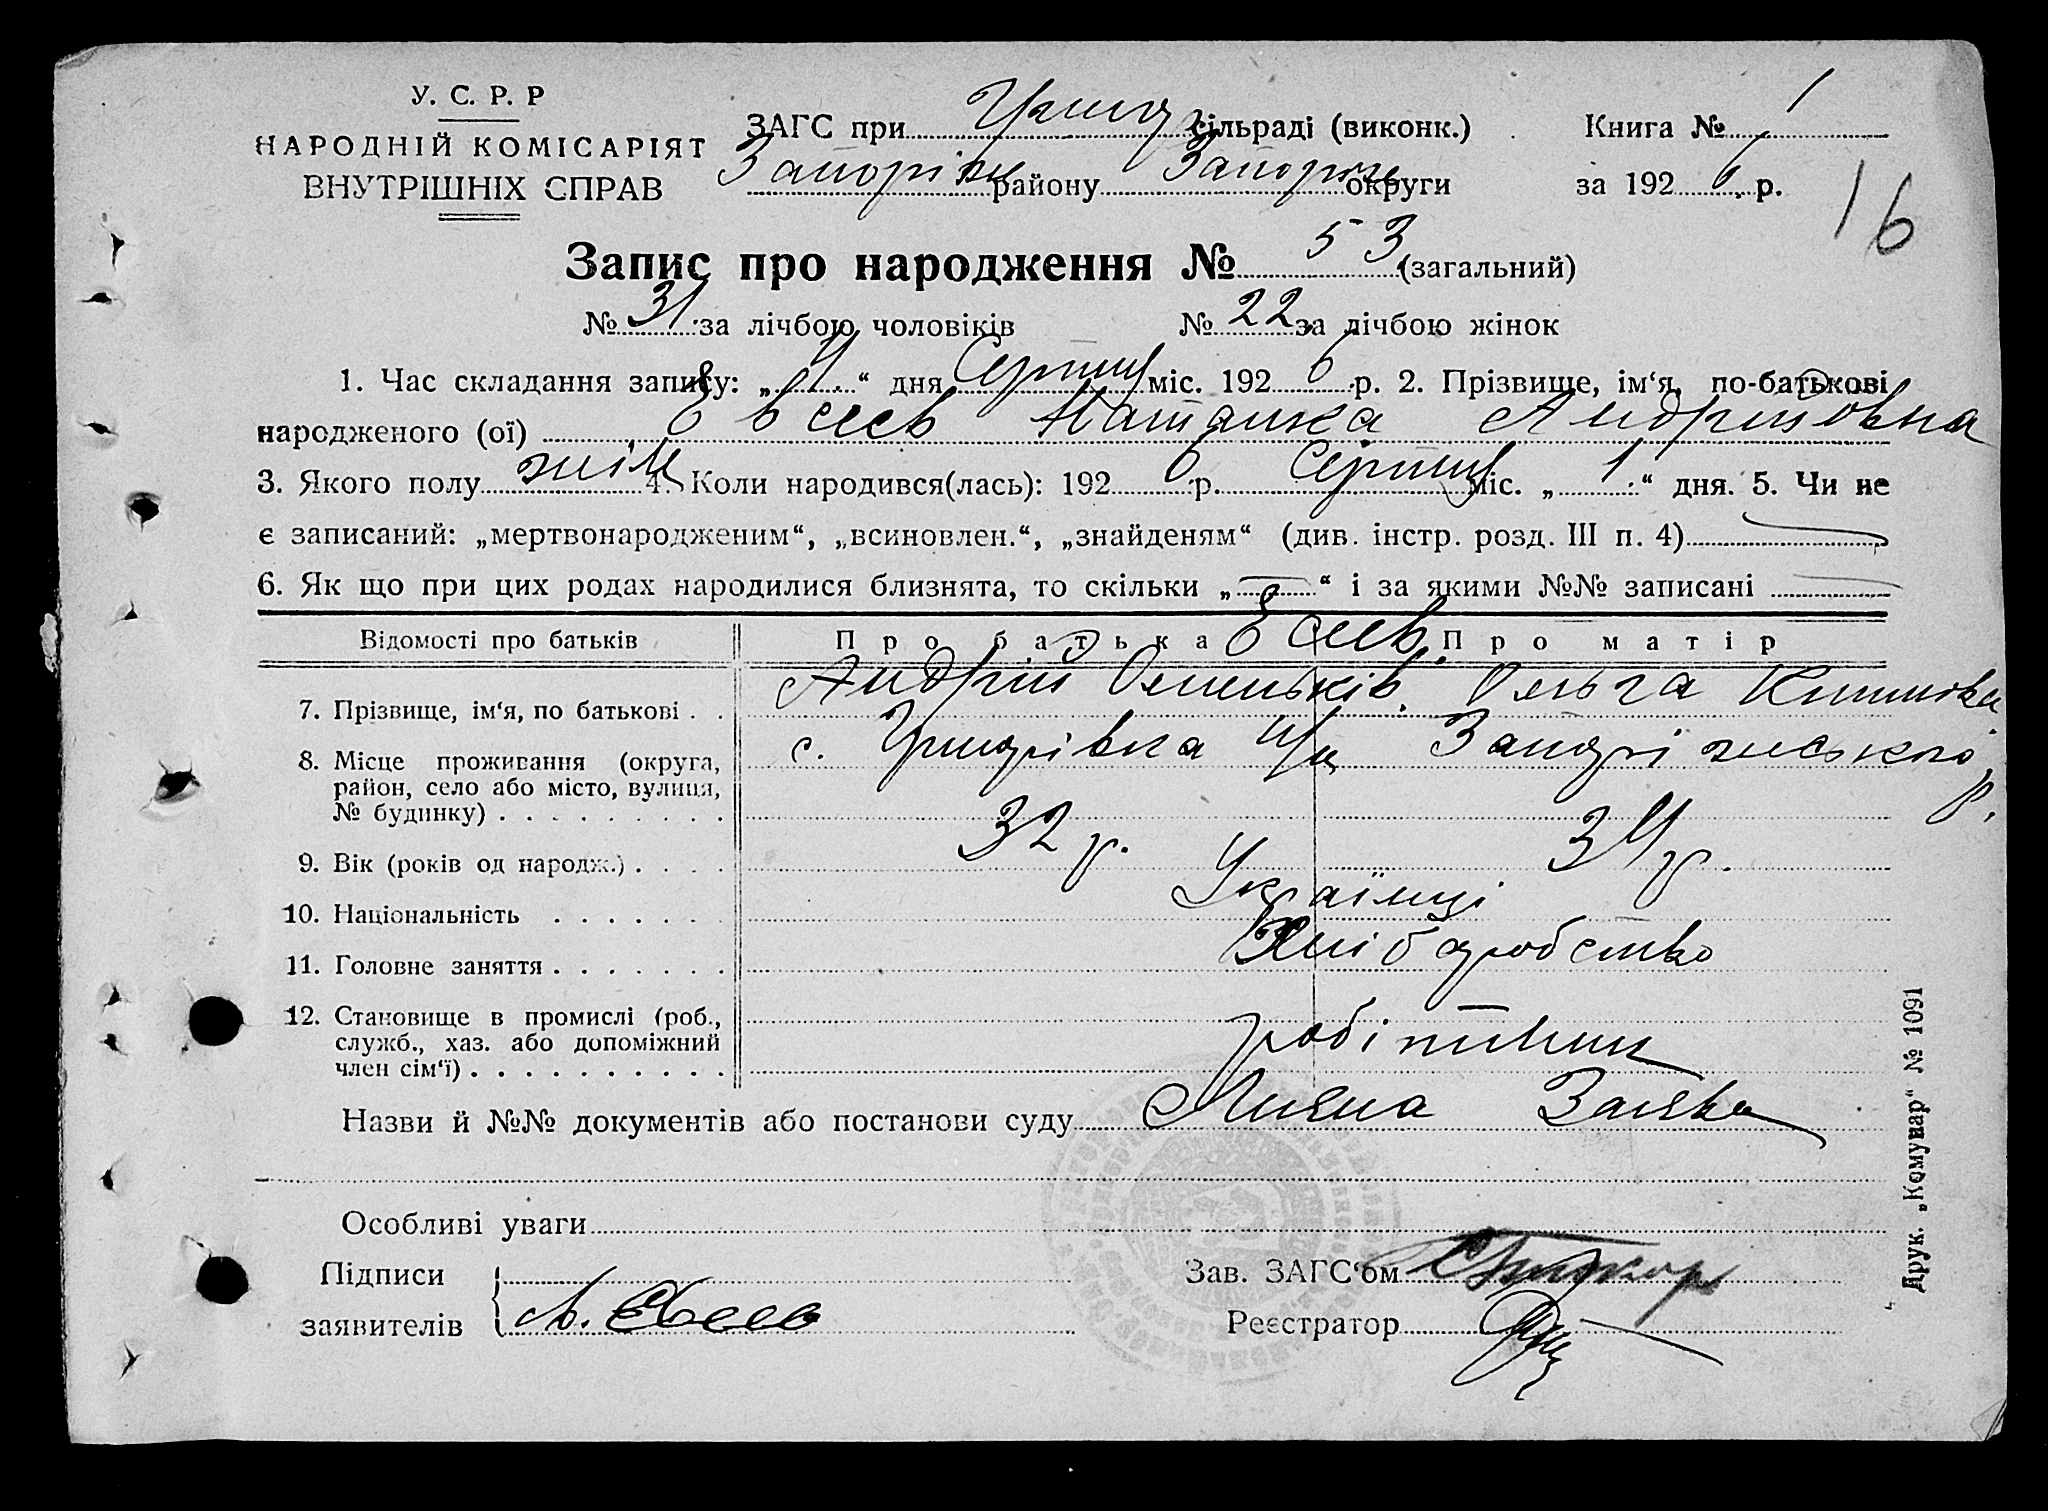 У. С. Р. Р
НАРОДНІЙ КОМІСАРІЯТ
ВНУТРІШНІХ СПРАВ
ЗАГС при сільраді (виконк.) Книга № 1
Запоріж району Запоріж округи за 192 6 р.
16
Запис про народження № 53 (загальний)
№ 31 за лічбою чоловіків № 22 за лічбою жінок
1. Час складання запису: „ 4 “ дня Серпня міс. 192 6 р. 2. Прізвище, ім‘я, по-батькові
народженого (ої) Наталка Андріївна
3. Якого полу жін 4. Коли народився(лась): 192 6 р. Серпня міс. „ 1 “ дня. 5. Чи не
є записаний: „мертвонародженим“, „всиновлен.“, „знайденям“ (див. інстр. розд. III п. 4)
6. Як що при цих родах народилися близнята, то скільки „ — “ і за якими №№ записані —
Відомості про батьків Про батька Про матір
7. Прізвище, ім‘я, по батькові . . Андрій Ольга
8. Місце проживання (округа, с. Запоріжського
район, село або місто, вулиця, р.
№ будинку) . . . . . . . . .
9. Вік (років од народж.) . . . . 32 р. 34 р.
10. Національність . . . . . . . Українці
11. Головне заняття . . . . . . . Хліборобство
12. Становище в промислі (роб.,
служб., хаз. або допоміжний робітник
член сім‘ї) . . . . . . . . . .
Назви й №№ документів або постанови суду Лична Заява
Особливі уваги
Підписи Зав. ЗАГС‘ом
заявителів Реєстратор
Друк. „Комунар“ № 1091